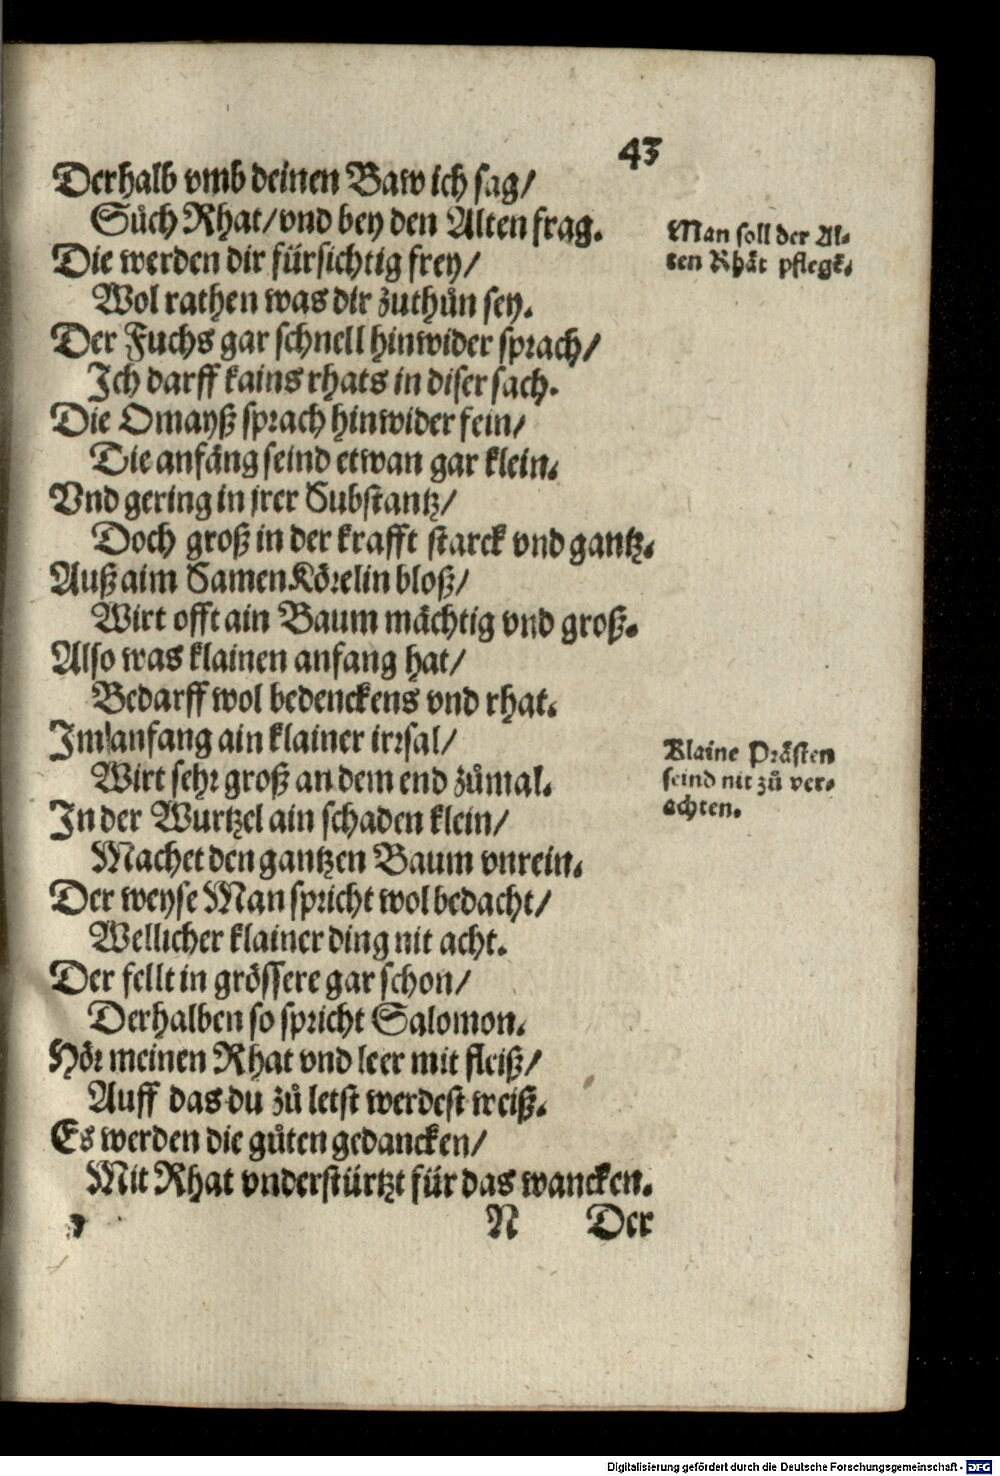 43
Derhalb vmb deinen Baw ich sag/
Sůch Rhat/vnd bey den Alten frag.
Man soll der Al-
ten Rhät pflegē.
Die werden dir fürsichtig frey/
Wol rathen was dir zuthůn sey.
Der Fuchs gar schnell hinwider sprach/
Ich darff kains rhats in diser sach.
Die Omayß sprach hinwider fein/
Die anfäng seind etwan gar klein.
Vnd gering in jrer Substantz/
Doch groß in der krafft starck vnd gantz.
Auß aim Samen Körelin bloß/
Wirt offt ain Baum mächtig vnd groß.
Also was klainen anfang hat/
Bedarff wol bedenckens vnd rhat.
Im anfang ain klainer irrsal/
Klaine Prästen
seind nit zů ver-
achten.
Wirt sehr groß an dem end zůmal.
In der Wurtzel ain schaden klein/
Machet den gantzen Baum vnrein.
Der weyse Man spricht wol bedacht/
Wellicher klainer ding nit acht.
Der fellt in grössere gar schon/
Derhalben so spricht Salomon.
Hör meinen Rhat vnd leer mit fleiß/
Auff das du zů letst werdest weiß.
Es werden die gůten gedancken/
Mit Rhat vnderstürtzt für das wancken.
N Der
Digitalisierung gefördert durch die Deutsche Forschungsgemeinschaft - DFG